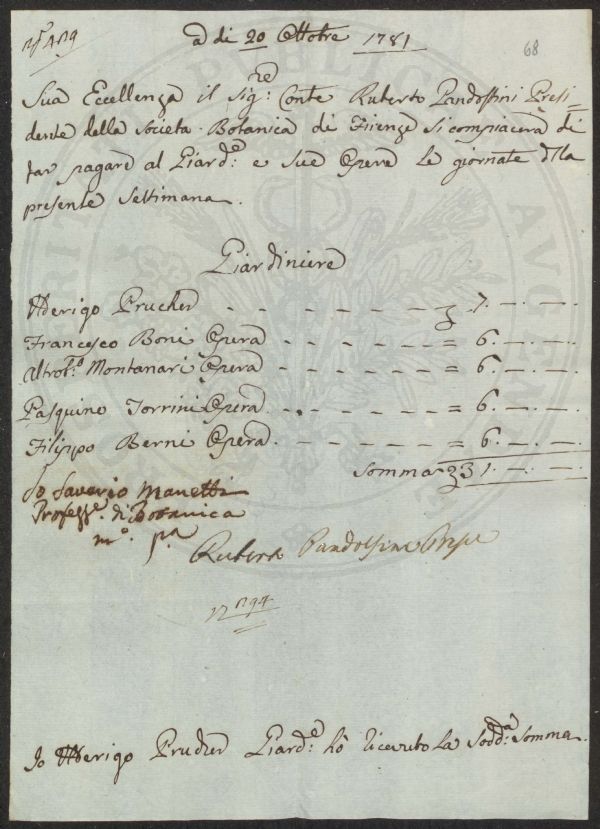 a di 20 Ottobre 1781
68
Sua Eccellenza il Sig:re Conte Ruberto Pandolfini Presi=
dente della Societa Botanica di Firenze si compiacerà di
far pagare al Giard:e e sue Opere le giornate della
presente Settimana.
Giardiniere
Prucher - - - - - - - 7. - . -
Francesco Boni Opera - - - - - = 6. - . -
Montanari Opera - - - - - = 6. - . -
Pasquino Torrini Opera - - - - - = 6. - . -
Filippo Berni Opera - - - - - = 6. - . -
Somma 31. - . -
Io Saverio Manetti
Profess:e di Botanica
m:o p:a
Pandolfini
Io Prucher Giard:e hò ricevuto la Sodd:a Somma.